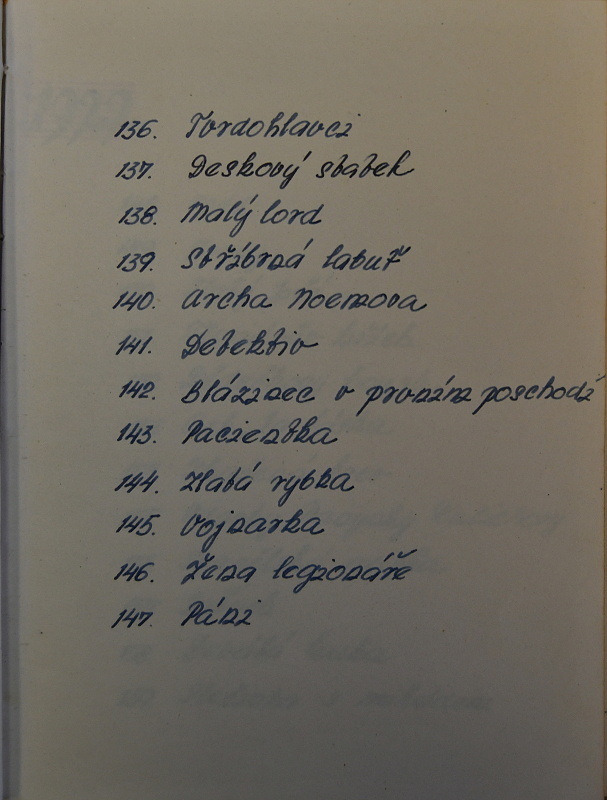 136. Tvrdohlavci
137. Deskový statek
138. Malý lord
139. Stříbrná labuť
140. Archa Noemova
141. Detektiv
142. Blázinec v prvním poschodí
143. Pacientka
144. Zlatá rybka
145. Vojnarka
146. Žena legionáře
147. Páni